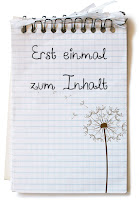 Erst einmal
zum Inhalt